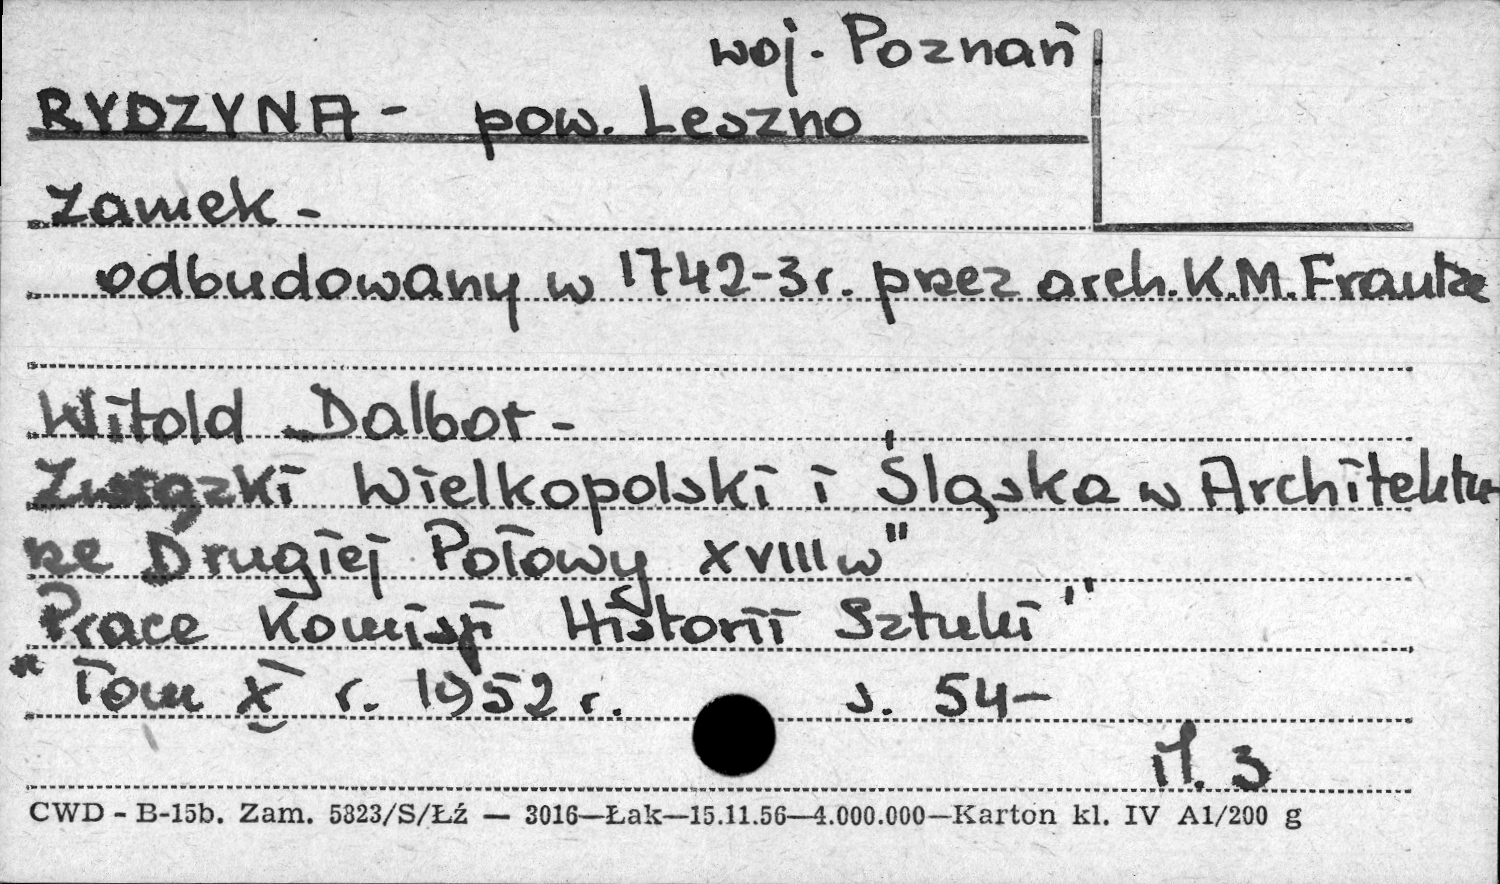 woj. Poznań
RYDZYNA - pow. Leszno
Zamek -
odbudowany w 1742-3 r. przez arch. K.M. Frantze
Witold Dalbor -
Związki Wielkopolski i Śląska w Architektu-
rze Drugiej Połowy XVIII w"
Prace Komisji Historii Sztuki"
" Tom X r. 1952 r. s. 54-
il. 3
CWD - B-15b. Zam. 5823/S/Łź — 3016—Łak—15.11.56—4.000.000—Karton kl. IV A1/200 g